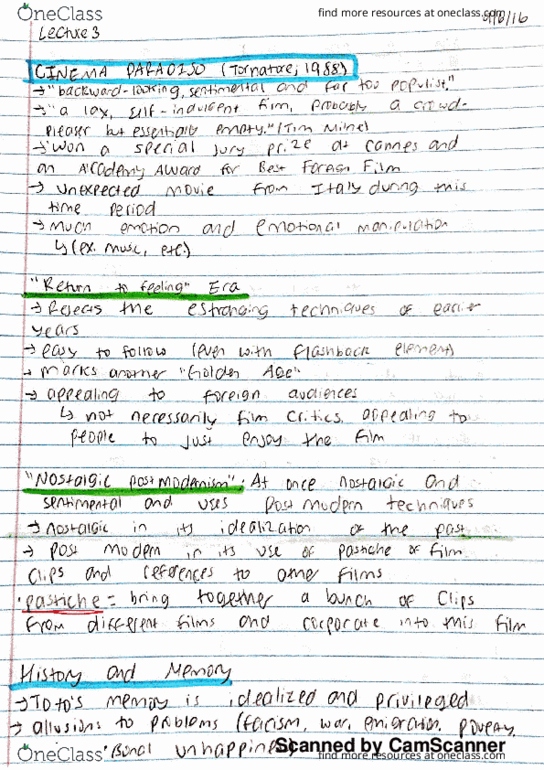 OneClass
find more resources at oneclass.com
Lecture 3
CINEMA PARADISO (Tornatore, 1988)
→ "backward-looking, sentimental and far too populist."
→ "a lax, self-indulgent film, probably a crowd-
pleaser but essentially empty." (Tim Milne)
→ won a special jury prize at Cannes and
an Academy Award for Best Foreign Film
→ unexpected movie from Italy during this
time period
→ Much emotion and emotional manipulation
↳ (ex. music, etc.)
"Return to feeling" Era
→ Rejects the estranging techniques of earlier
years
→ easy to follow (even with flashback element)
→ marks another "Golden Age"
→ appealing to foreign audiences
↳ not necessarily film critics, appealing to
people to just enjoy the film
"Nostalgic postmodernism": At once nostalgic and
sentimental and uses post modern techniques
→ nostalgic in its idealization of the past
→ post modern in its use of pastiche of film
clips and references to other films
• pastiche = bring together a bunch of clips
from different films and corporate into this film
History and Memory
→ Toto's memory is idealized and privileged
→ allusions to problems (facism, war, emigration, poverty,
OneClass
unhappiness)
Scanned by CamScanner
find more resources at oneclass.com